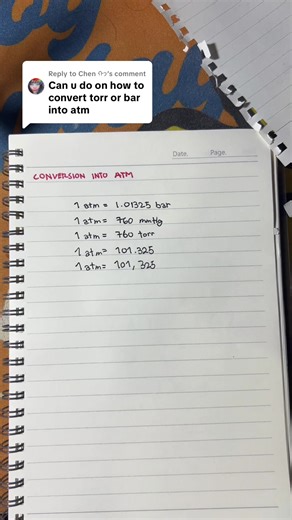 Reply to Chen ਿਾ's comment
Can u do on how to
convert torr or bar
into atm
Date. Page.
CONVERSION INTO ATM
1 atm = 1.01325 bar
1 atm = 760 mmHg
1 atm = 760 torr
1 atm = 101.325
1 atm = 101,325